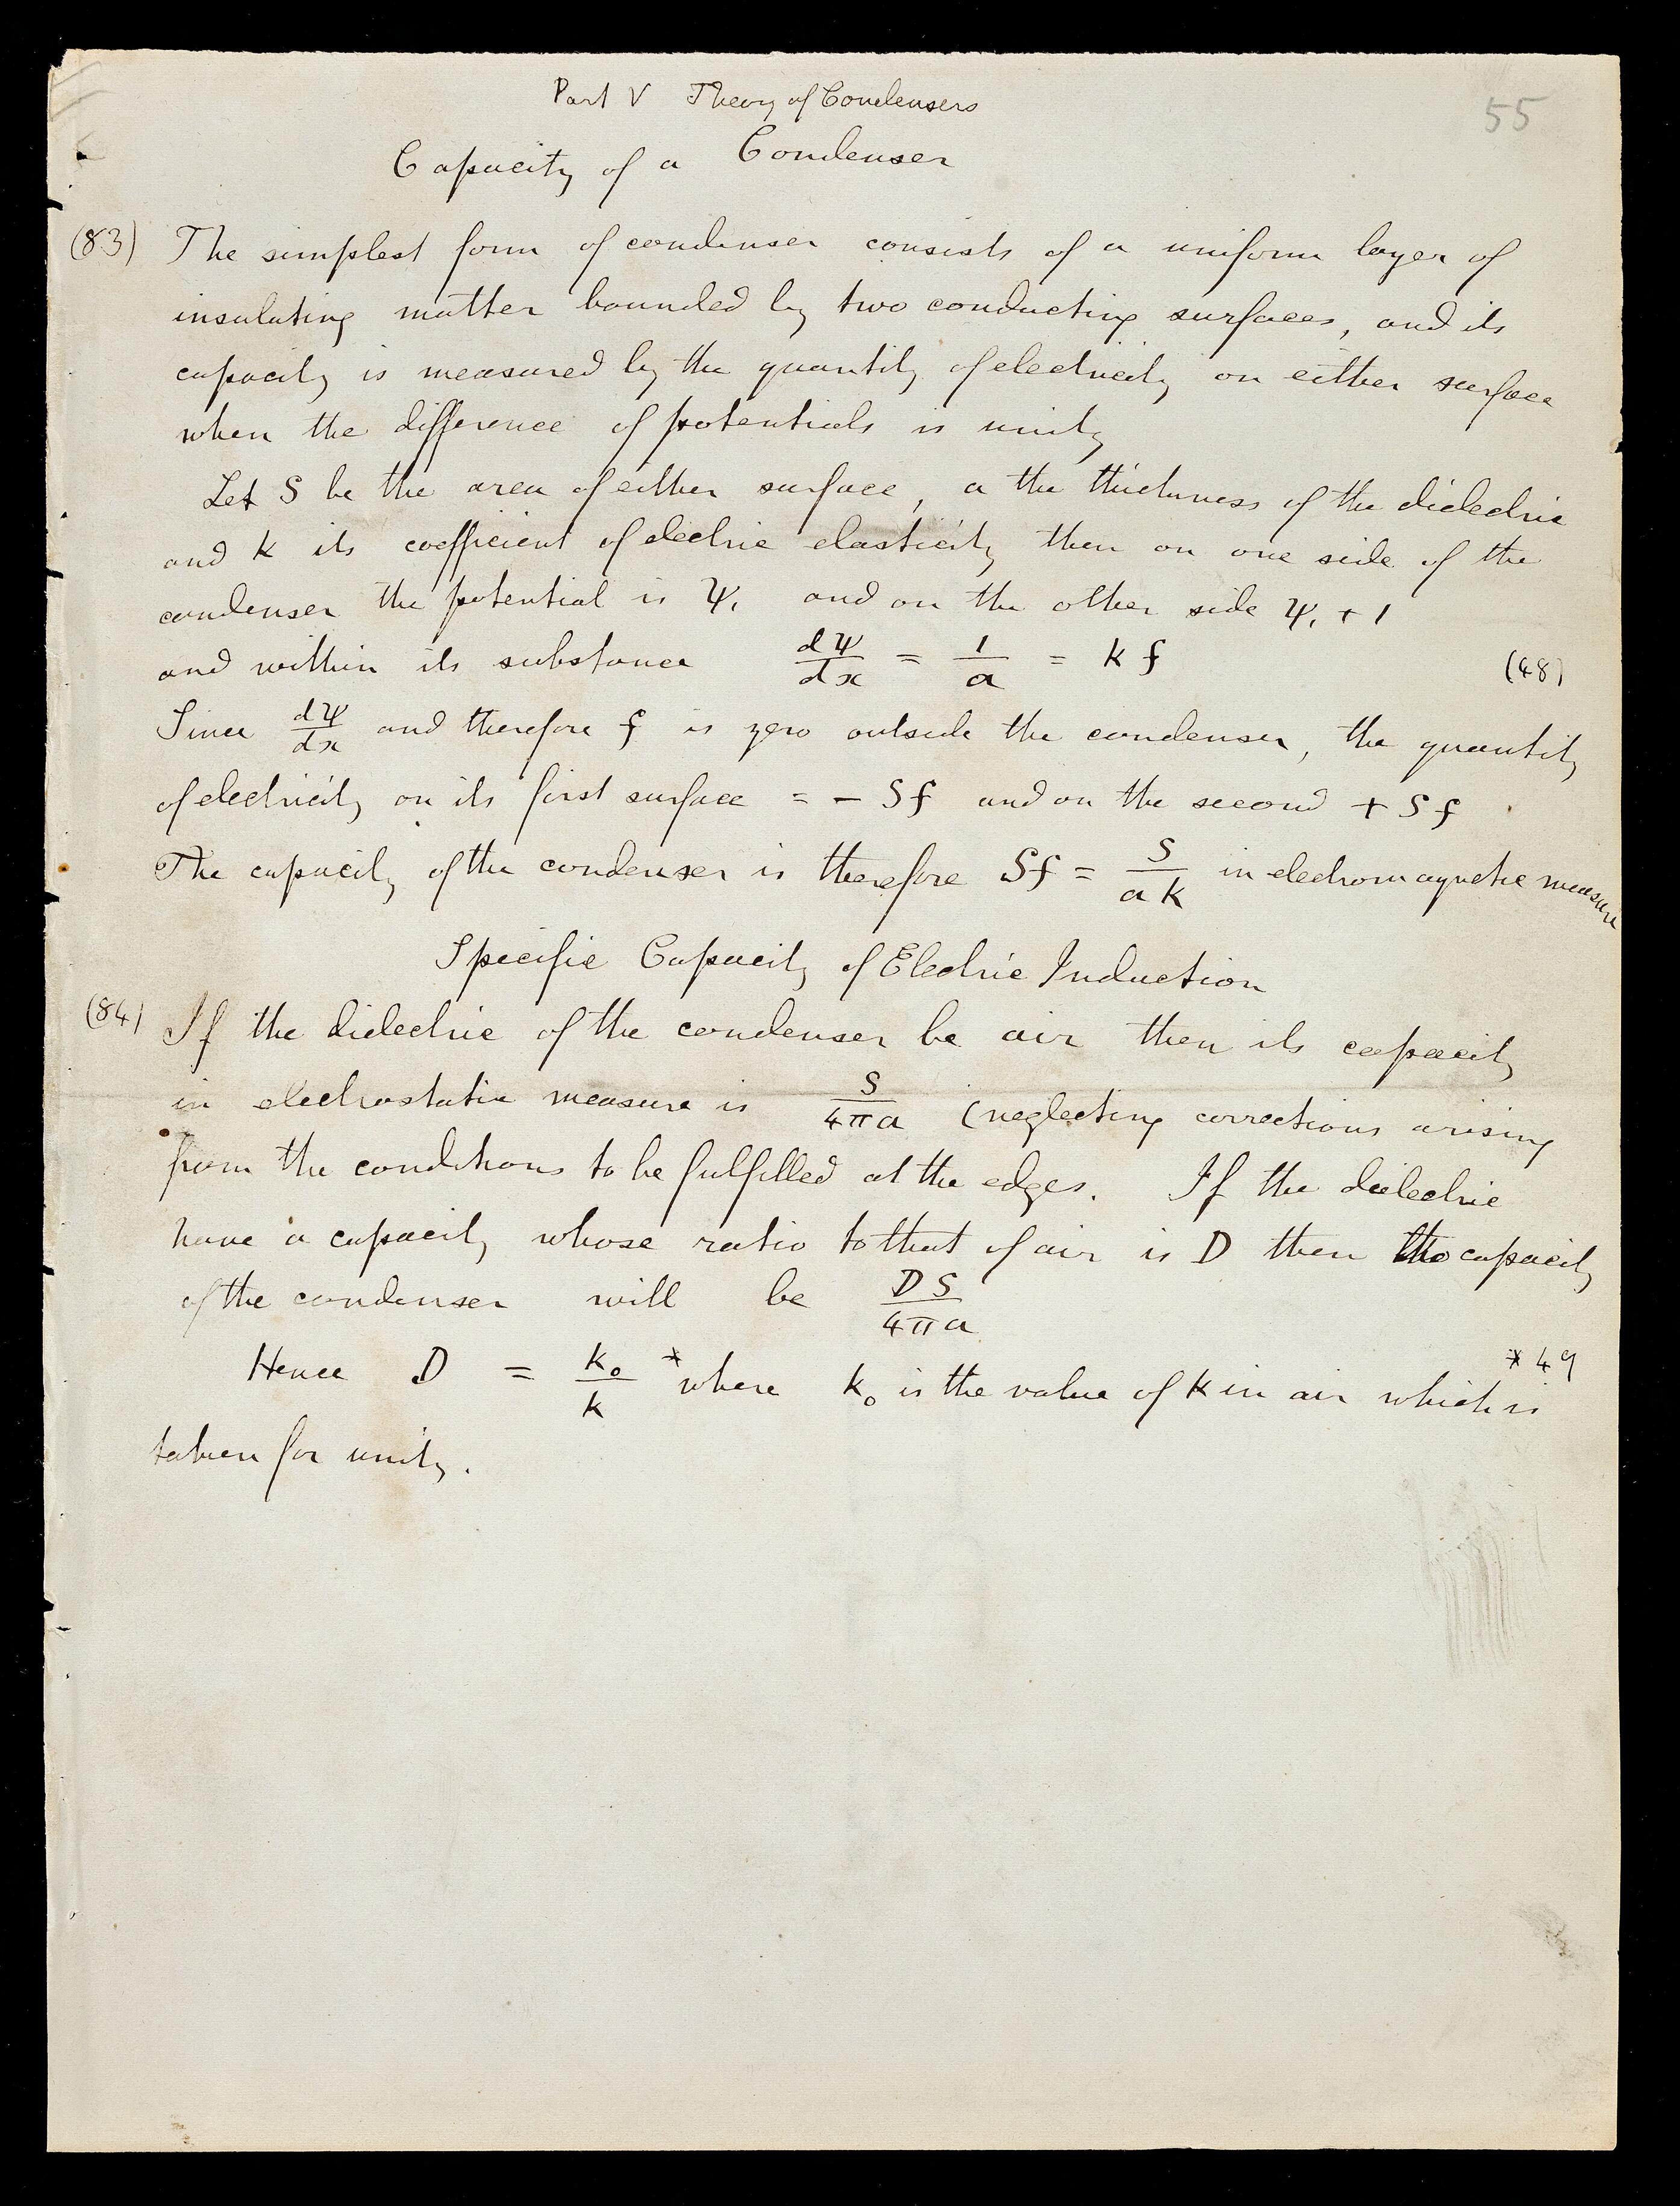 Part V Theory of Condensers
55
Capacity of a Condenser
(83) The simplest form of condenser consists of a uniform layer of
insulating matter bounded by two conducting surfaces, and its
capacity is measured by the quantity of electricity on either surface
when the difference of potentials is unity
Let S be the area of either surface, a the thickness of the dielectric
and k its coefficient of electric elasticity then on one side of the
condenser the potential is Ψ₁ and on the other side Ψ₁ + 1
and within its substance dΨ/dx = 1/a = k f (48)
Since dΨ/dx and therefore f is zero outside the condenser, the quantity
of electricity on its first surface = - Sf and on the second + Sf
The capacity of the condenser is therefore Sf = S/ak in electromagnetic measure
Specific Capacity of Electric Induction
(84) If the dielectric of the condenser be air then its capacity
in electrostatic measure is S/4πa (neglecting corrections arising
from the conditions to be fulfilled at the edges. If the dielectric
have a capacity whose ratio to that of air is D then the capacity
of the condenser will be DS/4πa
Hence D = k₀/k * where k₀ is the value of k in air which is * 49
taken for unity.